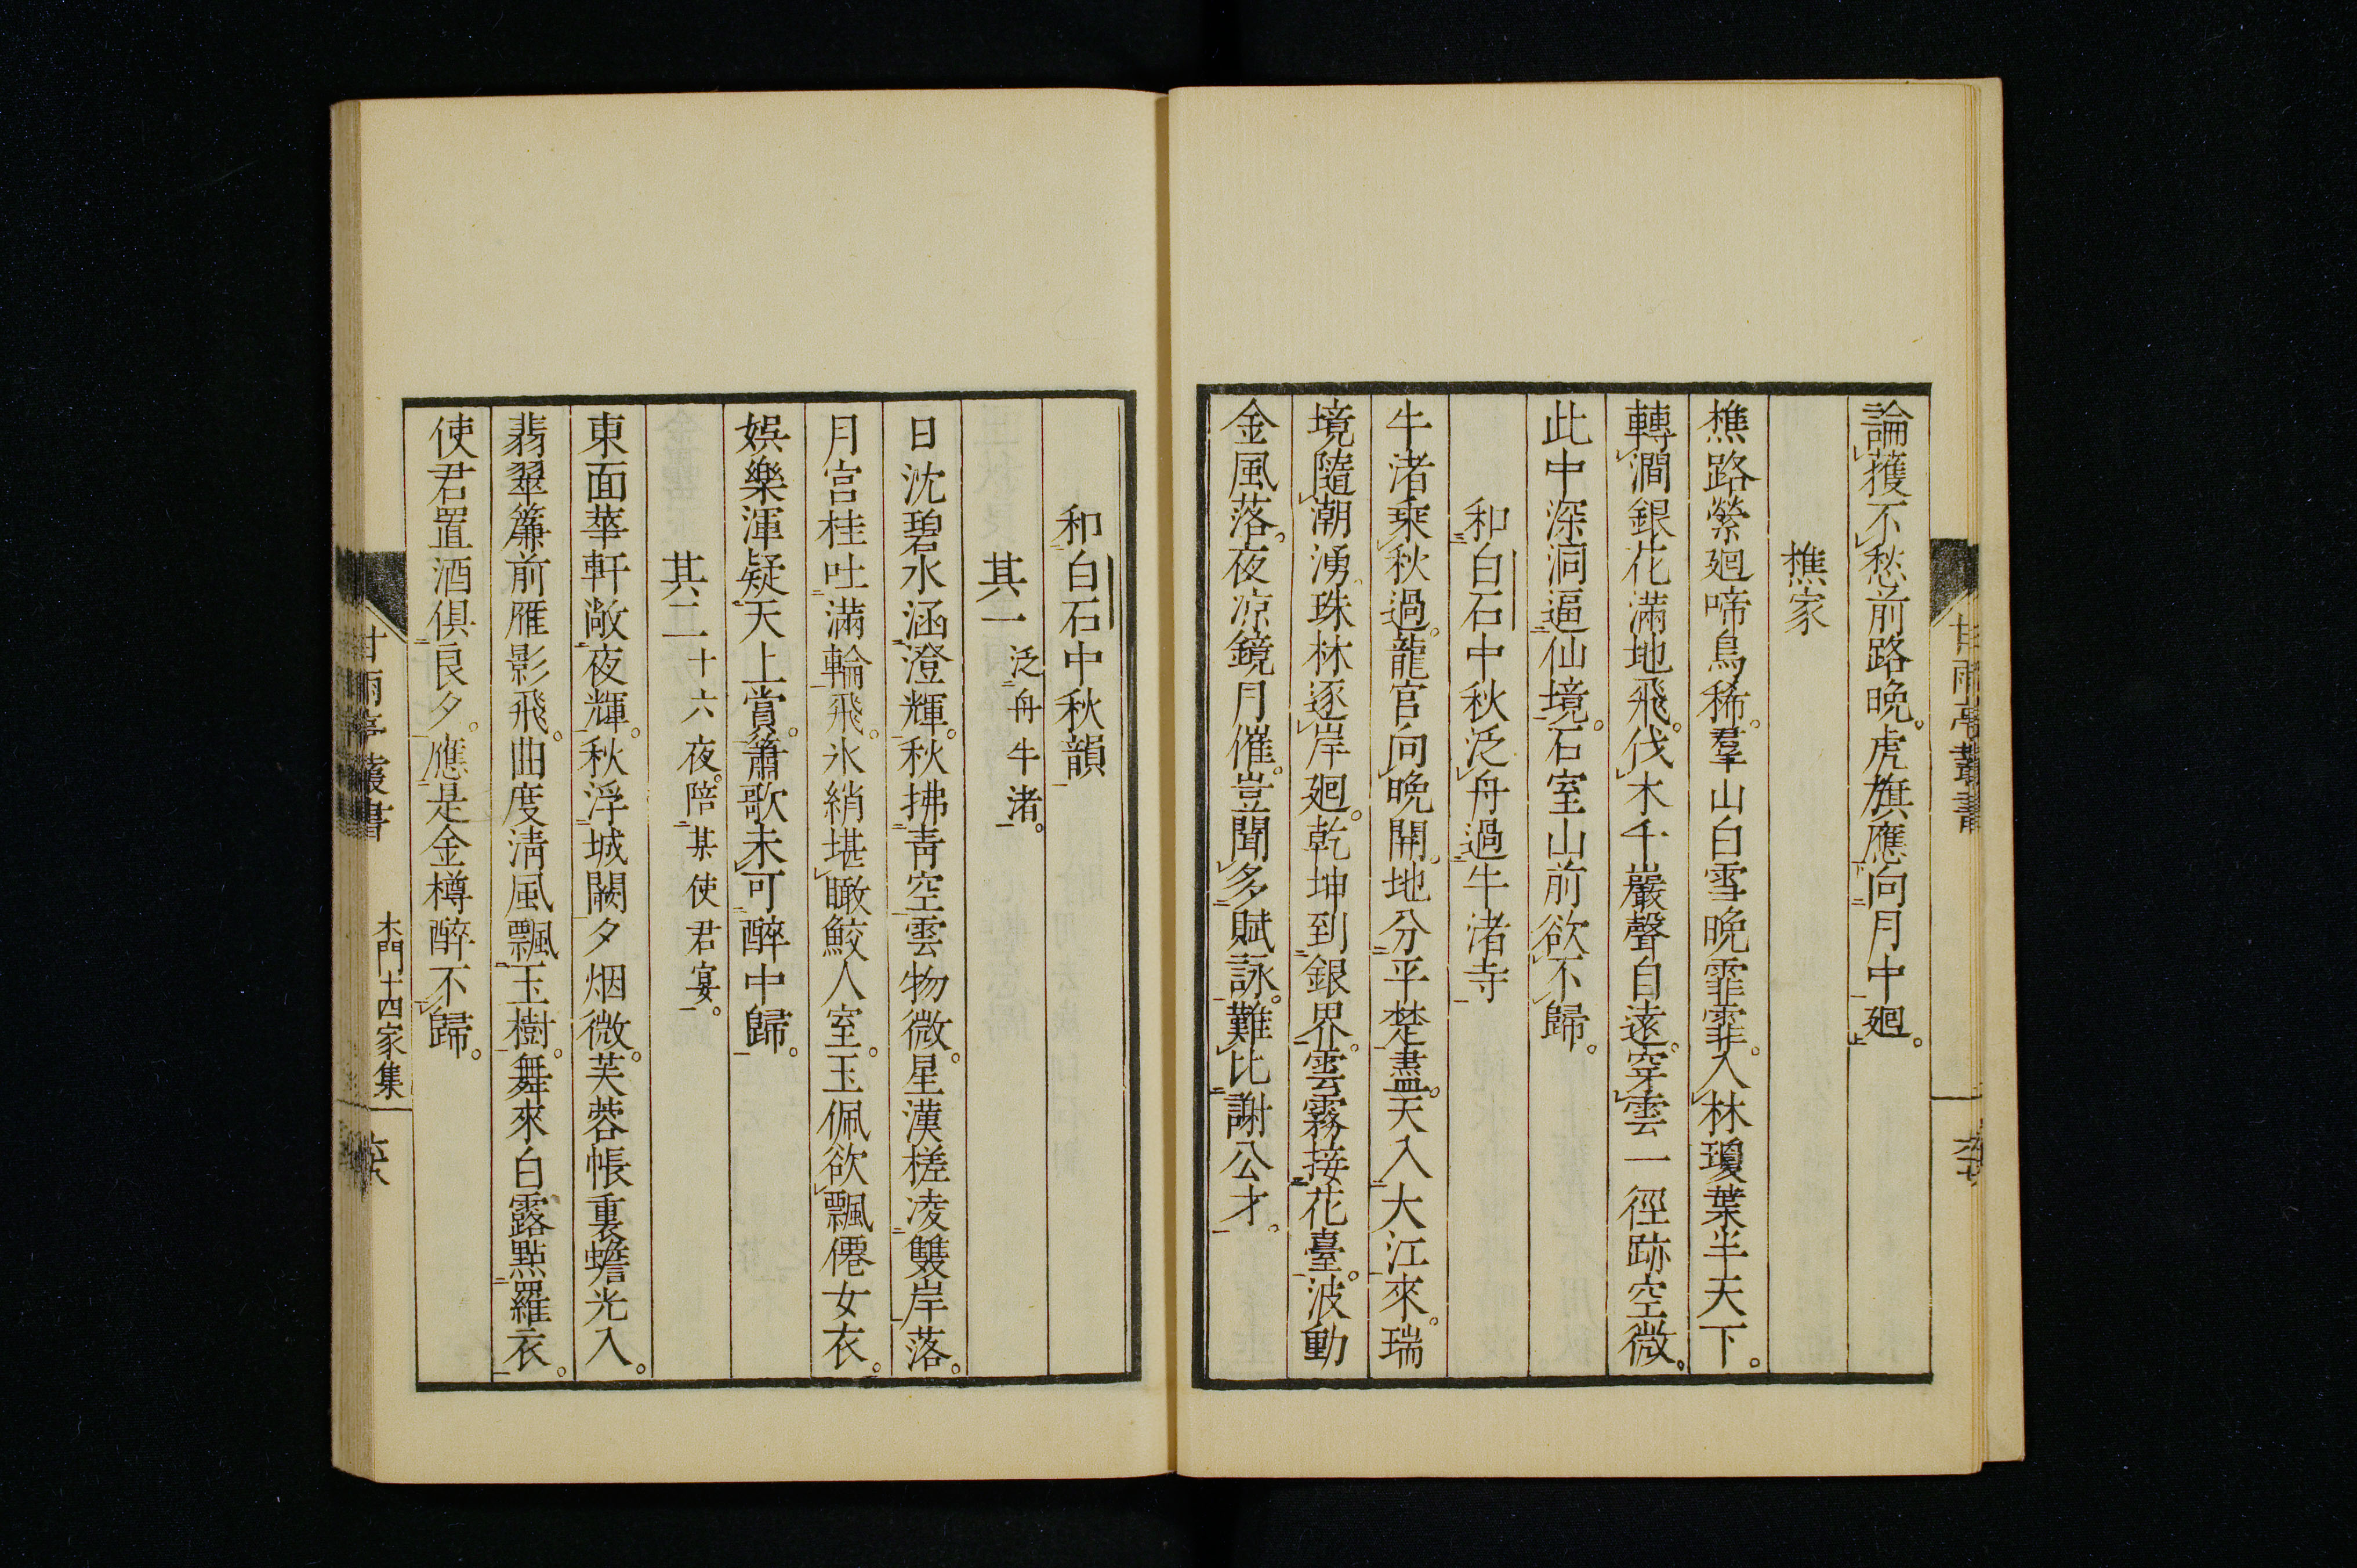 論獲不愁前路晩。虎旗應向月中廻。
樵家
樵路縈廻啼鳥稀。羣山白雪晩霏霏。入林瓊葉半天下。
轉澗銀花滿地飛。伐木千巖聲自遠。穿雲一徑跡空微。
此中深洞逼仙境。石室山前欲不歸。
和白石中秋泛舟過牛渚寺
牛渚乘秋過。龍宮向晩開。地分平楚盡。天入大江來。瑞
境隨潮湧。珠林逐岸廻。乾坤到銀界。雲霧接花臺。波動
金風落。夜凉鏡月催。豈聞多賦詠。難比謝公才。
甘雨亭叢書
和白石中秋韻
其一 泛舟牛渚。
日沈碧水涵澄輝。秋拂靑空雲物微。星漢槎凌雙岸落。
月宮桂吐滿輪飛。氷綃堪瞰鮫人室。玉佩欲飄僊女衣。
娯樂渾疑天上賞。簫歌未可醉中歸。
其二 十六夜。陪某使君宴。
東面華軒敞夜輝。秋浮城闕夕烟微。芙蓉帳裏蟾光入。
翡翠簾前雁影飛。曲度淸風飄玉樹。舞來白露點羅衣。
使君置酒倶良夕。應是金樽醉不歸。
甘雨亭叢書 木門十四家集